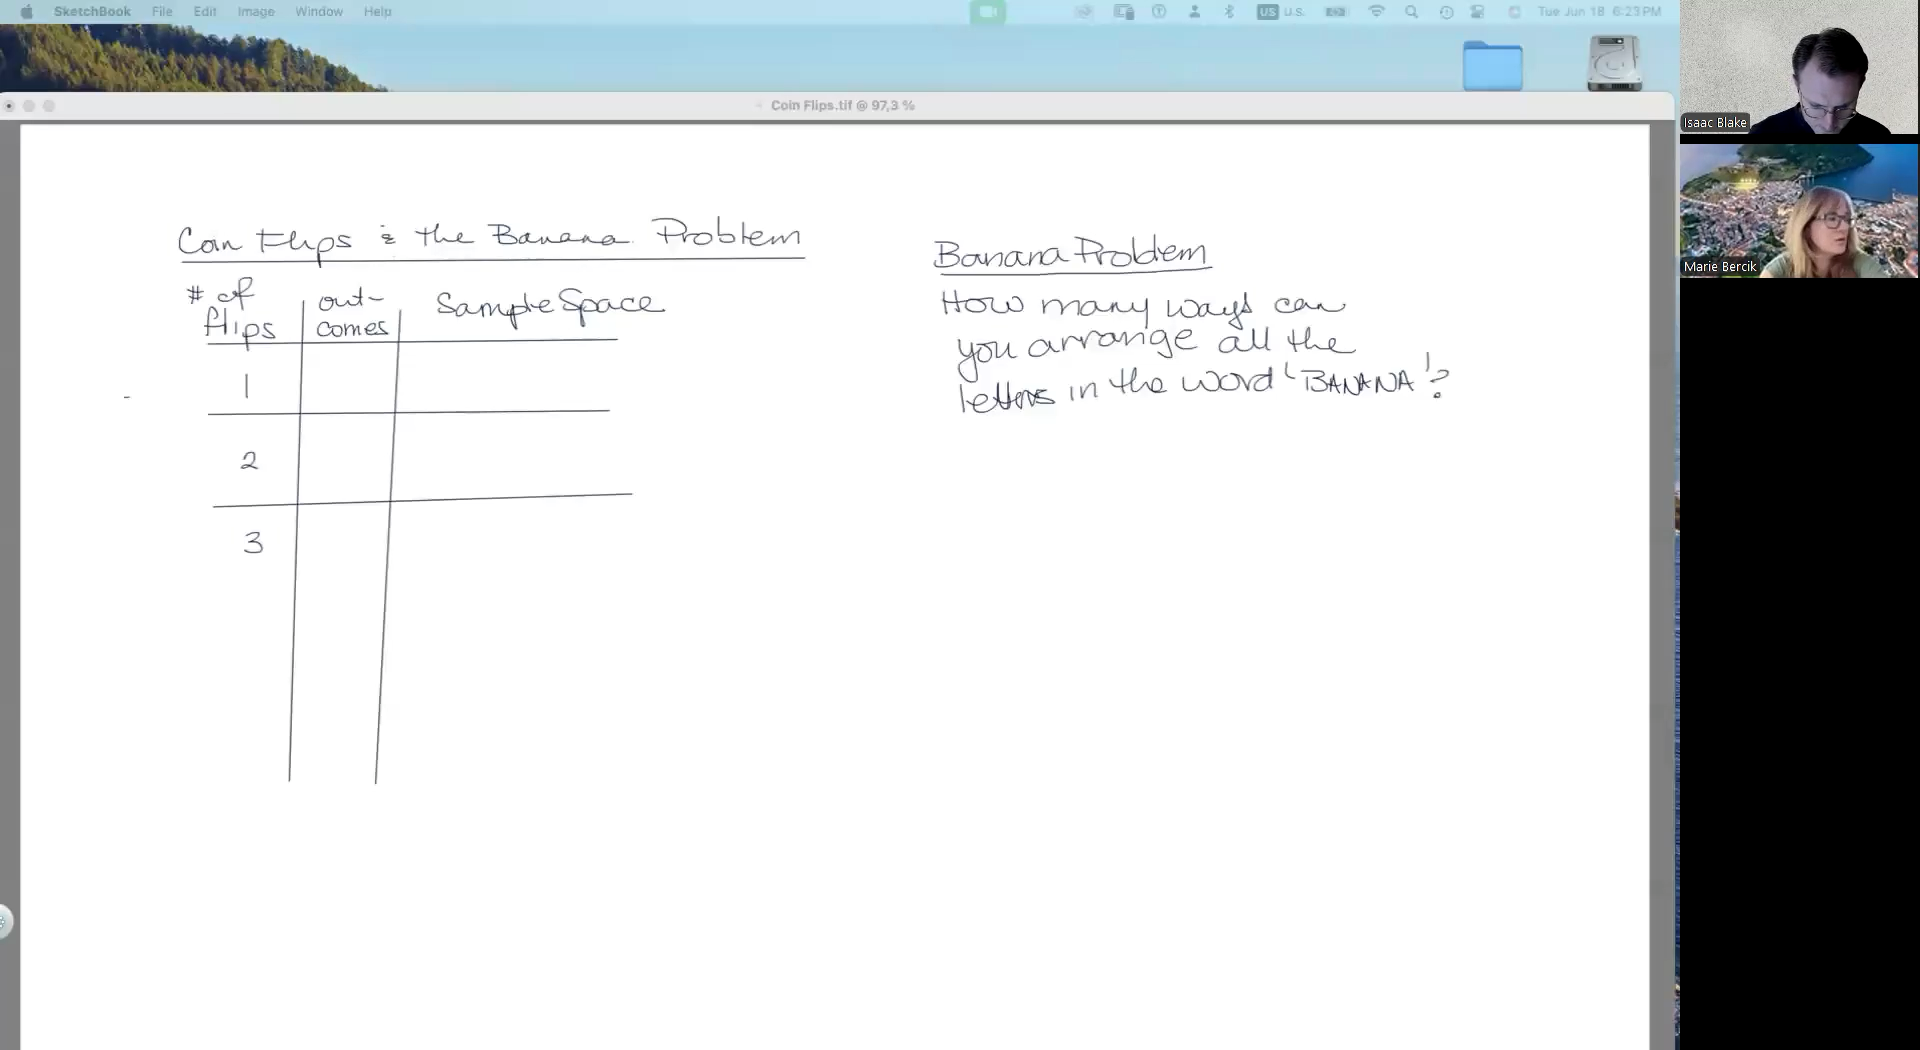 SketchBook File Edit Image Window Help
US U.S. Tue Jun 18 6:23 PM
Coin Flips.tif @ 97,3 %
Coin Flips & the Banana Problem
# of flips
out-
comes
Sample Space
1
2
3
Banana Problem
How many ways can
you arrange all the
letters in the word 'BANANA'?
Isaac Blake
Marie Bercik